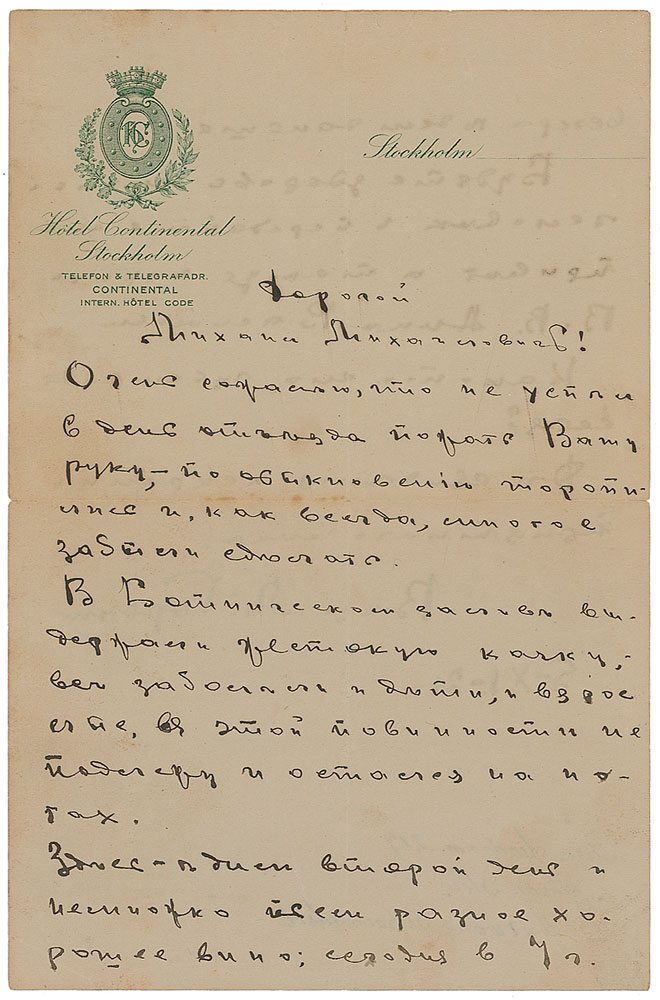 Stockholm
Hôtel Continental
Stockholm
TELEFON & TELEGRAFADR.
CONTINENTAL
INTERN. HÔTEL CODE
Дорогой
Михаил Михайловичъ!
Очень сожалѣю, что не успѣли
в день отъѣзда пожать Вашу
руку,– по обыкновенію торопи-
лись и, как всегда, многое
забыли сдѣлать.
В Ботническом заливѣ вы-
держали жестокую качку,–
всѣ заболѣли и дѣти, и взрос
лые, я этой повинности не
подлежу и остался на но-
гах.
Здѣсь ѣдим второй день и
немножко пьем разное хо-
рошее вино; сегодня в 7 ч.